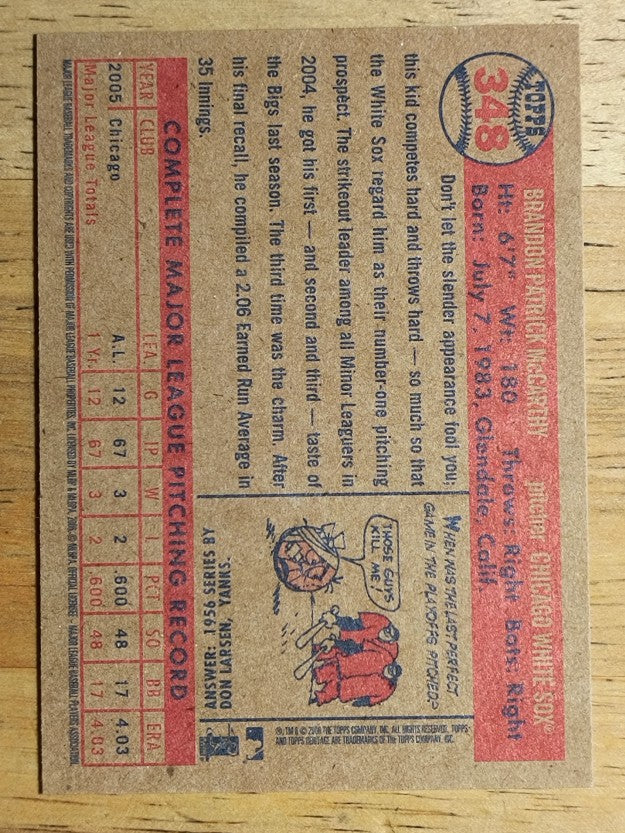 TOPPS
348
BRANDON PATRICK McCARTHY pitcher CHICAGO WHITE SOX®
Ht: 6'7" Wt: 180 Throws: Right Bats: Right
Born: July 7, 1983, Glendale, Calif.
Don't let the slender appearance fool you;
this kid competes hard and throws hard — so much so that
the White Sox regard him as their number-one pitching
prospect. The strikeout leader among all Minor Leaguers in
2004, he got his first — and second and third — taste of
the Bigs last season. The third time was the charm. After
his final recall, he compiled a 2.06 Earned Run Average in
35 Innings.
WHEN WAS THE LAST PERFECT
GAME IN THE PLAYOFFS PITCHED?
THOSE GUYS
KILL ME!
ANSWER: 1956 SERIES BY
DON LARSEN, YANKS.
®, TM & © 2006 THE TOPPS COMPANY, INC. ALL RIGHTS RESERVED. TOPPS
AND TOPPS HERITAGE ARE TRADEMARKS OF THE TOPPS COMPANY, INC.
COMPLETE MAJOR LEAGUE PITCHING RECORD
YEAR CLUB LEA G IP W L PCT SO BB ERA
2005 Chicago A.L. 12 67 3 2 .600 48 17 4.03
Major League Totals 1 Yr. 12 67 3 2 .600 48 17 4.03
MAJOR LEAGUE BASEBALL TRADEMARKS AND COPYRIGHTS ARE USED WITH PERMISSION OF MAJOR LEAGUE BASEBALL PROPERTIES, INC. © MLBPA OFFICIAL LICENSEE - MAJOR LEAGUE BASEBALL PLAYERS ASSOCIATION.